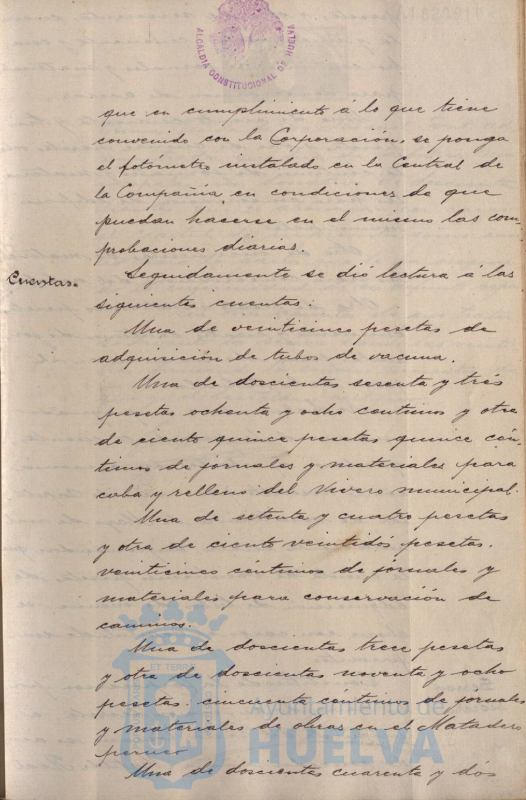 ALCALDIA CONSTITUCIONAL DE HUELVA
que en cumplimiento á lo que tiene
convenido con la Corporación, se ponga
el fotómetro instalado en la Central de
la Compañía en condiciones de que
puedan hacerse en el mismo las com-
probaciones diarias.
Cuentas.
Seguidamente se dió lectura á las
siguientes cuentas:
Una de veinticinco pesetas de
adquisición de tubos de vacuna.
Una de doscientas sesenta y tres
pesetas ochenta y ocho centimos y otra
de ciento quince pesetas quince cén-
timos de jornales y materiales para
caba y relleno del Vivero municipal.
Una de setenta y cuatro pesetas
y otra de ciento veintidós pesetas.
veinticinco céntimos de jornales y
materiales para conservación de
caminos.
Una de doscientas trece pesetas
y otra de doscientas noventa y ocho
pesetas cincuenta céntimos de jornales
y materiales de obras en el Matadero
Una de doscientas cuarenta y dós
Ayuntamiento de
HUELVA